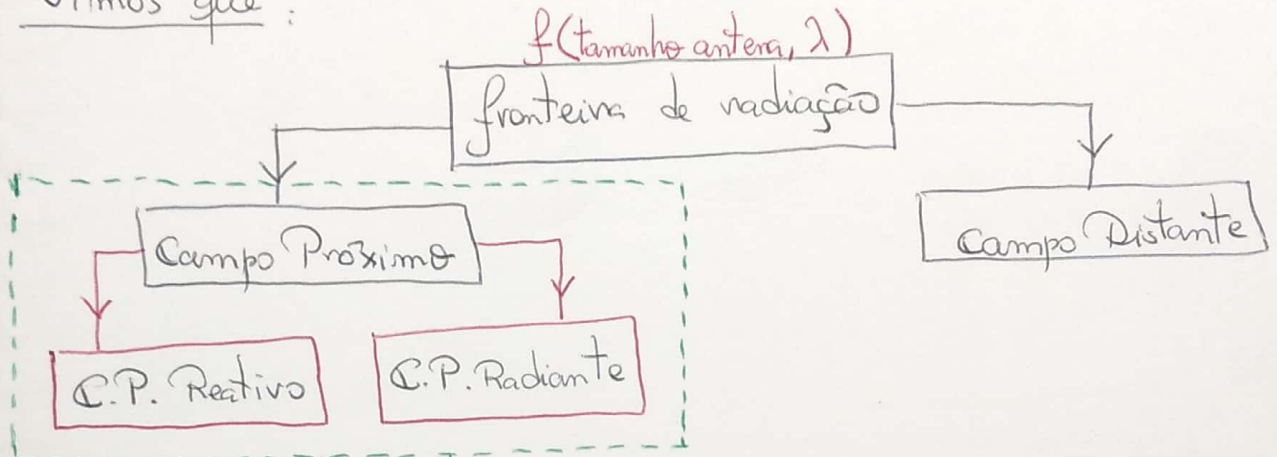 Vimos que :
f(tamanho antena, λ)
fronteira de radiação
Campo Próximo
Campo Distante
C.P. Reativo
C.P. Radiante